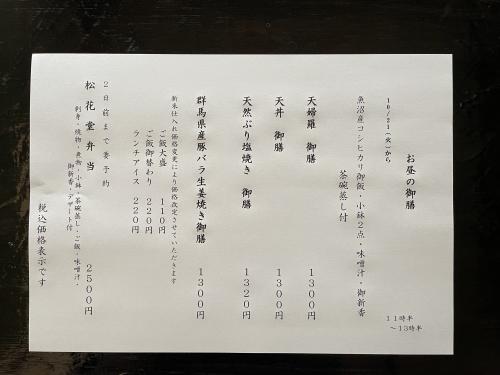 お昼の御膳
11時半
～13時半
10/21(火)から
魚沼産コシヒカリ御飯・小鉢2点・味噌汁・御新香
茶碗蒸し付
天婦羅 御膳 1300円
天丼 御膳 1300円
天然ぶり塩焼き 御膳 1320円
群馬県産豚バラ生姜焼き御膳 1300円
新米仕入れ価格変更により価格改定させていただきます
ご飯大盛 110円
ご飯御替わり 220円
ランチアイス 220円
2日前まで要予約
松花堂弁当 2500円
刺身・焼物・煮物・小鉢・茶碗蒸し・ご飯・味噌汁・
御新香・デザート付
税込価格表示です